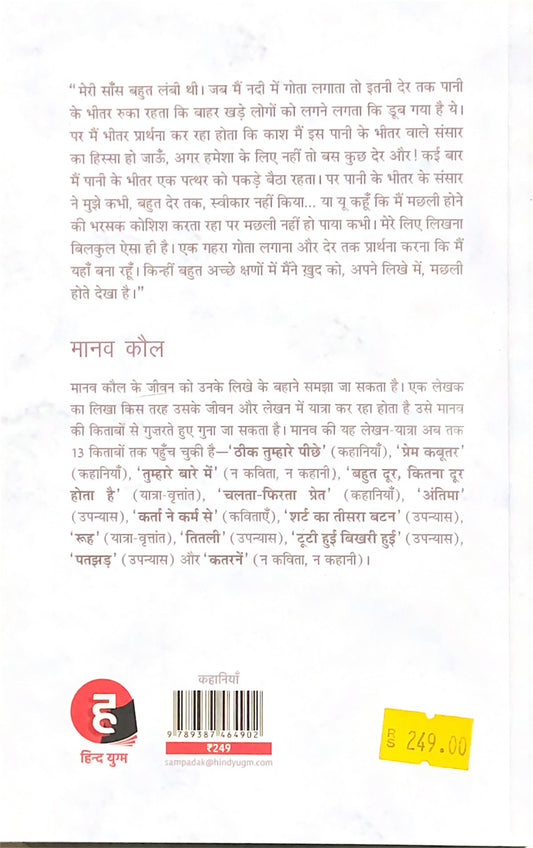 “मेरी साँस बहुत लंबी थी। जब मैं नदी में गोता लगाता तो इतनी देर तक पानी
के भीतर रुका रहता कि बाहर खड़े लोगों को लगने लगता कि डूब गया है ये।
पर मैं भीतर प्रार्थना कर रहा होता कि काश मैं इस पानी के भीतर वाले संसार
का हिस्सा हो जाऊँ, अगर हमेशा के लिए नहीं तो बस कुछ देर और! कई बार
मैं पानी के भीतर एक पत्थर को पकड़े बैठा रहता। पर पानी के भीतर के संसार
ने मुझे कभी, बहुत देर तक, स्वीकार नहीं किया... या यू कहूँ कि मैं मछली होने
की भरसक कोशिश करता रहा पर मछली नहीं हो पाया कभी। मेरे लिए लिखना
बिलकुल ऐसा ही है। एक गहरा गोता लगाना और देर तक प्रार्थना करना कि मैं
यहाँ बना रहूँ। किन्हीं बहुत अच्छे क्षणों में मैंने ख़ुद को, अपने लिखे में, मछली
होते देखा है।”
मानव कौल
मानव कौल के जीवन को उनके लिखे के बहाने समझा जा सकता है। एक लेखक
का लिखा किस तरह उसके जीवन और लेखन में यात्रा कर रहा होता है उसे मानव
की किताबों से गुजरते हुए गुना जा सकता है। मानव की यह लेखन-यात्रा अब तक
13 किताबों तक पहुँच चुकी है—‘ठीक तुम्हारे पीछे’ (कहानियाँ), ‘प्रेम कबूतर’
(कहानियाँ), ‘तुम्हारे बारे में’ (न कविता, न कहानी), ‘बहुत दूर, कितना दूर
होता है’ (यात्रा-वृत्तांत), ‘चलता-फिरता प्रेत’ (कहानियाँ), ‘अंतिमा’
(उपन्यास), ‘कर्ता ने कर्म से’ (कविताएँ), ‘शर्ट का तीसरा बटन’ (उपन्यास),
‘रूह’ (यात्रा-वृत्तांत), ‘तितली’ (उपन्यास), ‘टूटी हुई बिखरी हुई’ (उपन्यास),
‘पतझड़’ (उपन्यास) और ‘कतरनें’ (न कविता, न कहानी)।
कहानियाँ
ह
हिन्द युग्म
9 789387 464902
₹249
sampadak@hindyugm.com
RS 249.00